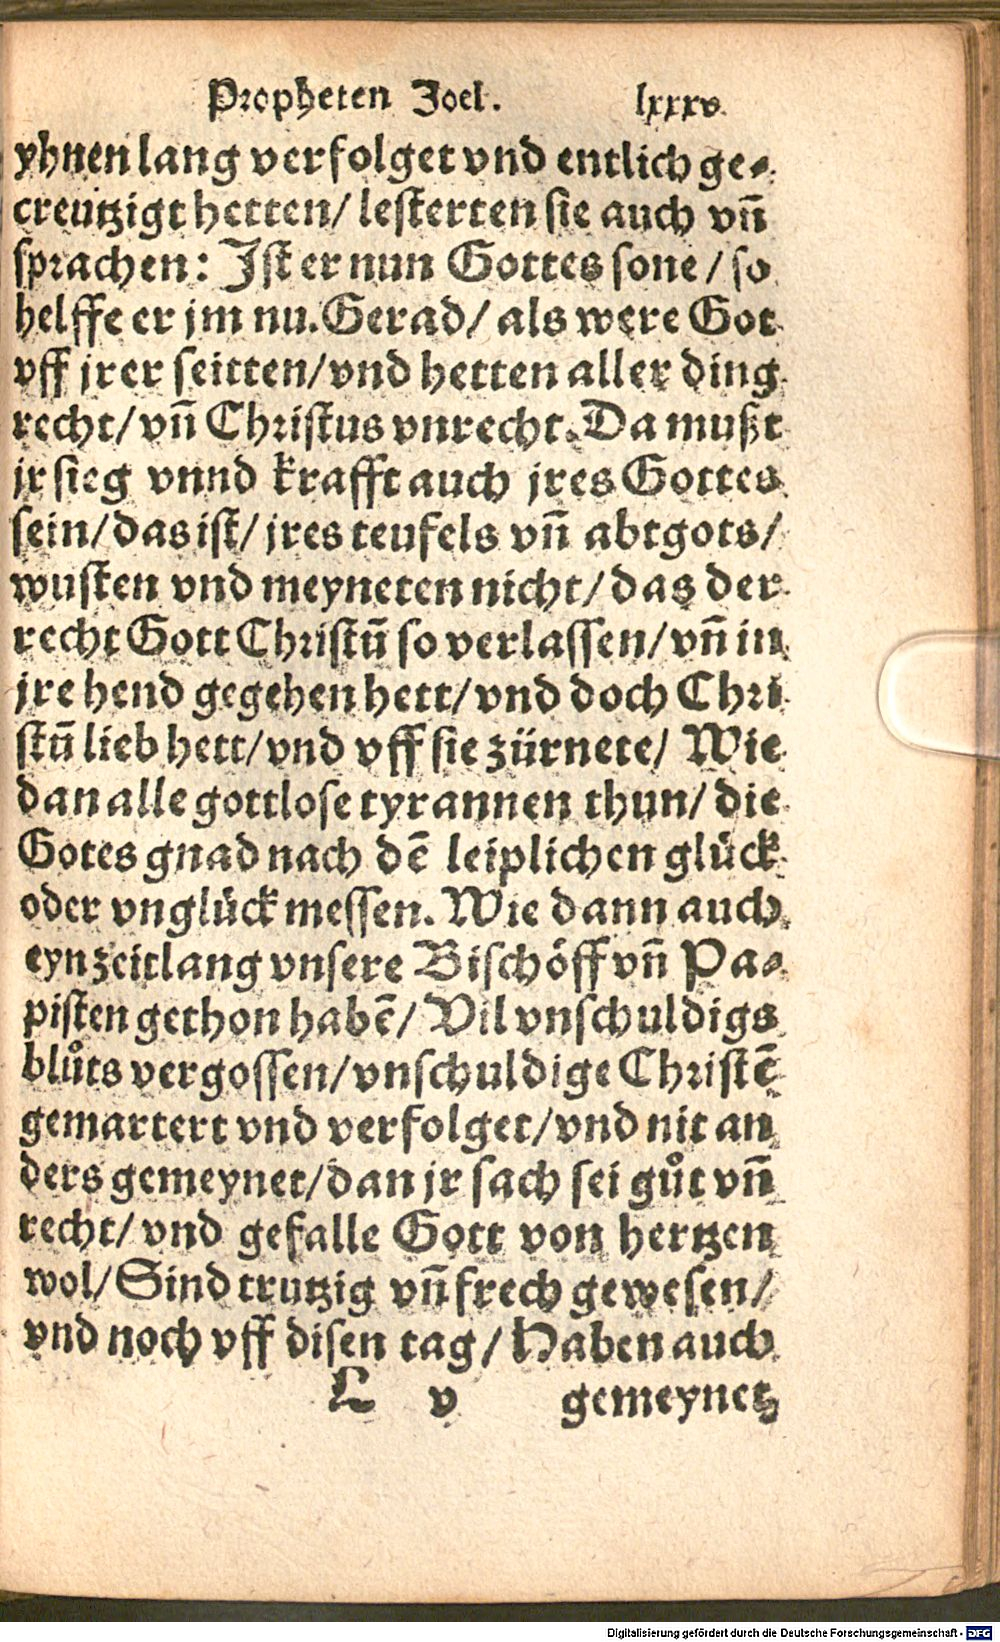 Propheten Joel. lxxxv.
yhnen lang verfolget vnd entlich ge⸗
creutzigt hetten/ lesterten sie auch vn̄
sprachen: Ist er nun Gottes sone/ so
helffe er jm nu. Gerad/ als were Got
vff jrer seitten/ vnd hetten aller ding
recht/ vn̄ Christus vnrecht. Da mußt
jr sieg vnnd krafft auch jres Gottes
sein/ das ist/ jres teufels vn̄ abtgots/
wusten vnd meyneten nicht/ das der
recht Gott Christū so verlassen/ vn̄ in
jre hend gegehen hett/ vnd doch Chri
stū lieb hett/ vnd vff sie zürnete/ Wie
dan alle gottlose tyrannen thun/ die
Gotes gnad nach dē leiplichen glück
oder vnglück messen. Wie dann auch
eyn zeitlang vnsere Bischöff vn̄ Pa⸗
pisten gethon habē/ Vil vnschuldigs
blůts vergossen/ vnschuldige Christē
gemartert vnd verfolget/ vnd nit an
ders gemeynet/ dan jr sach sei gůt vn̄
recht/ vnd gefalle Gott von hertzen
wol/ Sind trutzig vn̄ frech gewesen/
vnd noch vff disen tag/ Haben auch
L v gemeynet
Digitalisierung gefördert durch die Deutsche Forschungsgemeinschaft - DFG